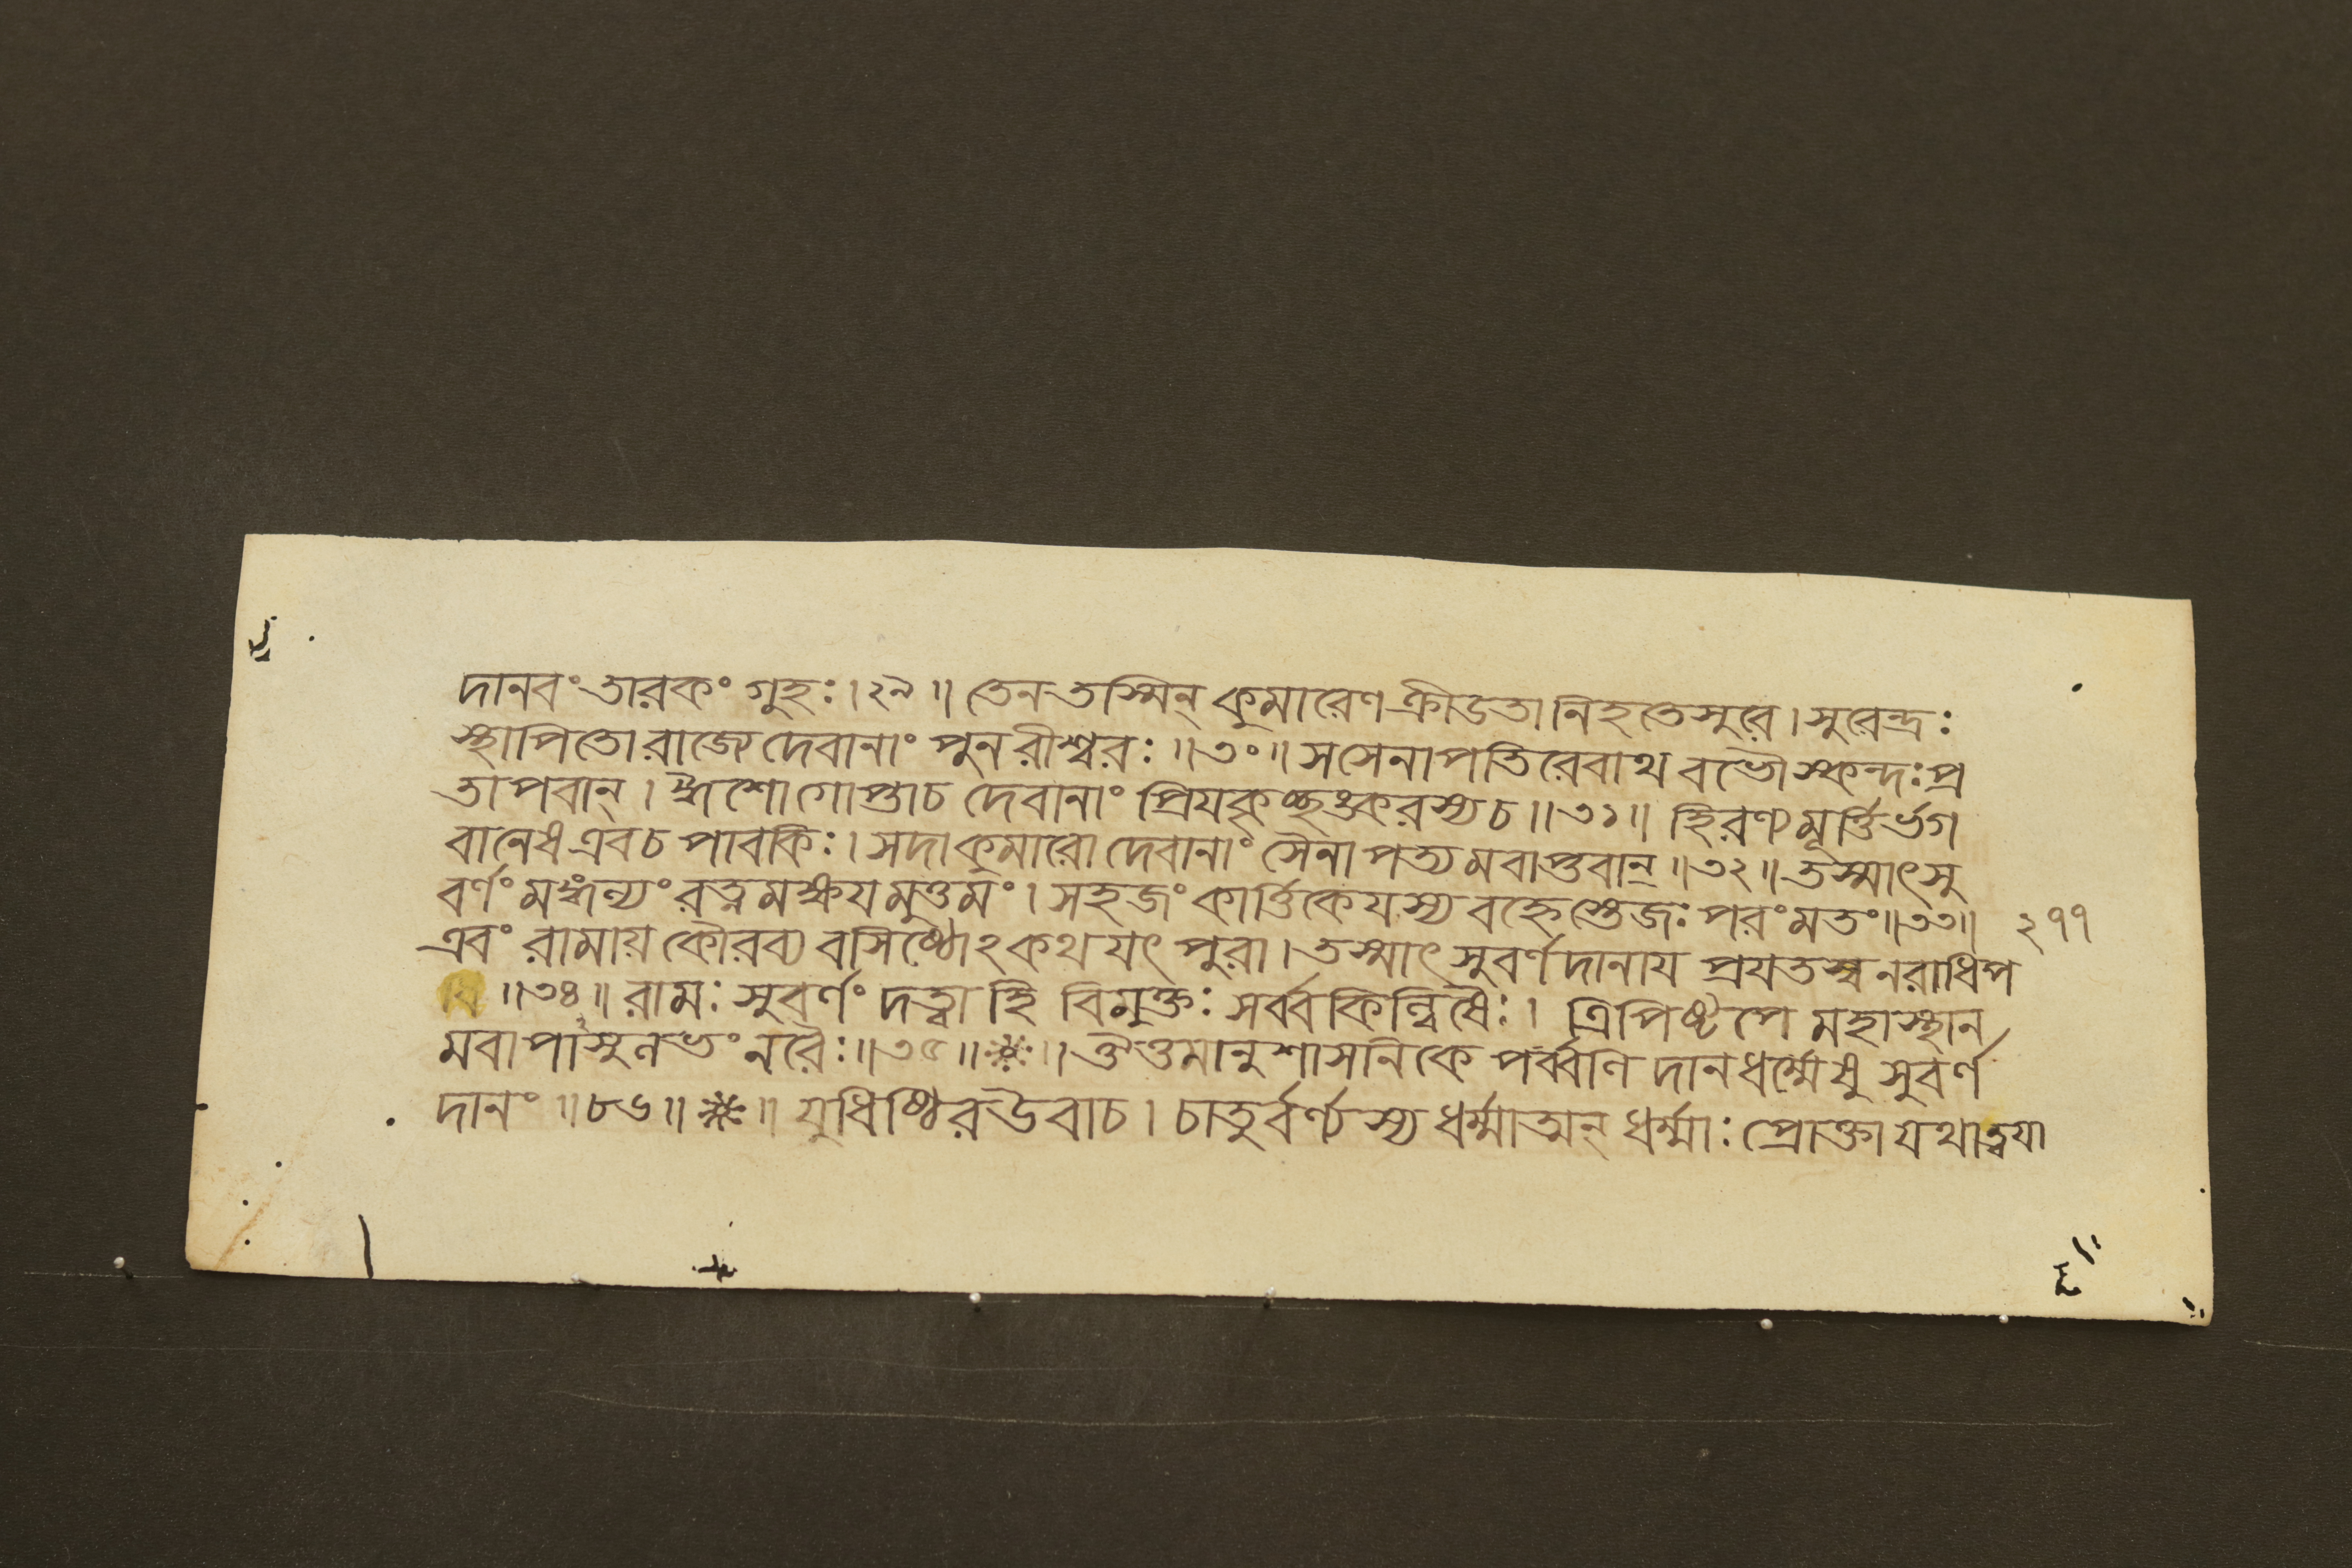 দানবং তারকং গুহঃ।২৯॥ তেন তস্মিন্ কুমারেণ ক্রীডতা নিহতেসুরে। সুরেন্দ্রঃ
স্থাপিতো রাজ্যে দেবানাং পুনরীশ্বরঃ॥৩০॥ স সেনাপতিরেবাথ বভৌ স্কন্দঃ প্র
তাপবান্। ঈশো গোপ্তাচ দেবানাং প্রিযকৃচ্ছঙ্করস্যচ॥৩১॥ হিরণ্যমূর্ত্তির্ভগ
বানেষ এবচ পাবকিঃ। সদা কুমারো দেবানাং সৈনাপত্যমবাপ্তবান্॥৩২॥ তস্মাৎসু
বর্ণং মঙ্গল্যং রত্নমক্ষযমুত্তমং। সহজং কার্ত্তিকেযস্য বহ্নেস্তেজঃ পরংমতং॥৩৩॥ ২৭৭
এবং রামায় কৌরব্য বসিষ্ঠোঽকথযৎ পুরা। তস্মাৎ সুবর্ণদানায প্রযতস্ব নরাধিপ
॥৩৪॥ রামঃ সুবর্ণং দত্ত্বা হি বিমুক্তঃ সর্ব্বকিল্বিষৈঃ। ত্রিপিষ্টপে মহাস্থান
মবাপাসুলভং নরৈঃ॥৩৫॥ ॥ ঔত্তমানুশাসনিকে পর্ব্বণি দানধর্ম্মেষু সুবর্ণ
দানং॥৮৬॥ ॥ যুধিষ্ঠির উবাচ। চাতুর্বর্ণ্যস্য ধর্ম্মাত্মন্ ধর্ম্মাঃ প্রোক্তা যথাত্বযা